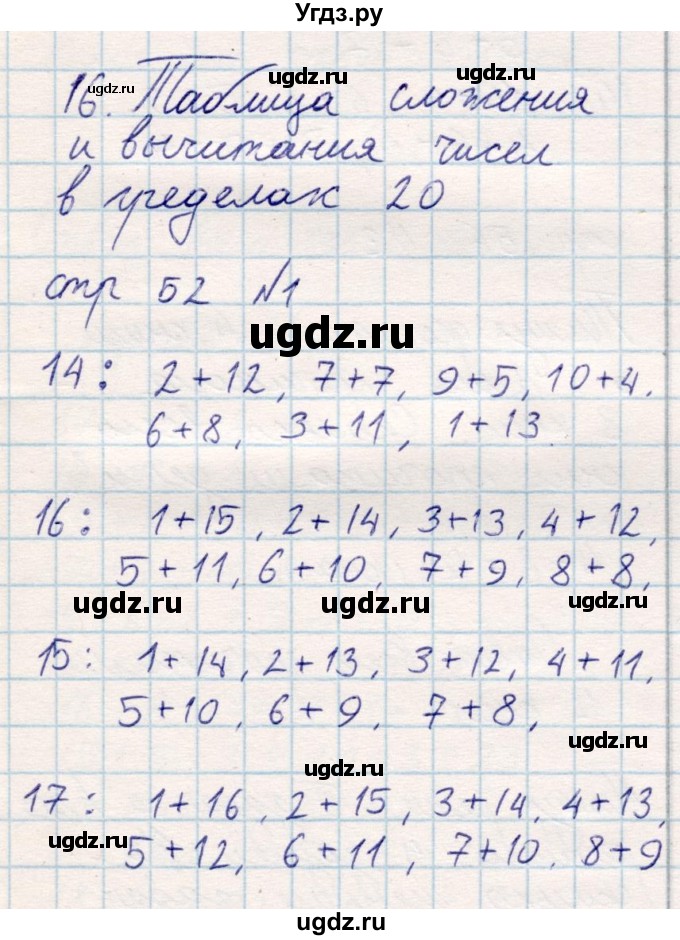 Угдз.ру
16. Таблица сложения
и вычитания чисел
в пределах 20
стр 52 №1
14: 2+12, 7+7, 9+5, 10+4.
6+8, 3+11, 1+13.
16: 1+15, 2+14, 3+13, 4+12,
5+11, 6+10, 7+9, 8+8,
15: 1+14, 2+13, 3+12, 4+11,
5+10, 6+9, 7+8,
17: 1+16, 2+15, 3+14, 4+13,
5+12, 6+11, 7+10, 8+9
ugdz.ru
ugdz.ru
ugdz.ru
ugdz.ru
ugdz.ru
ugdz.ru
ugdz.ru
ugdz.ru
ugdz.ru
ugdz.ru